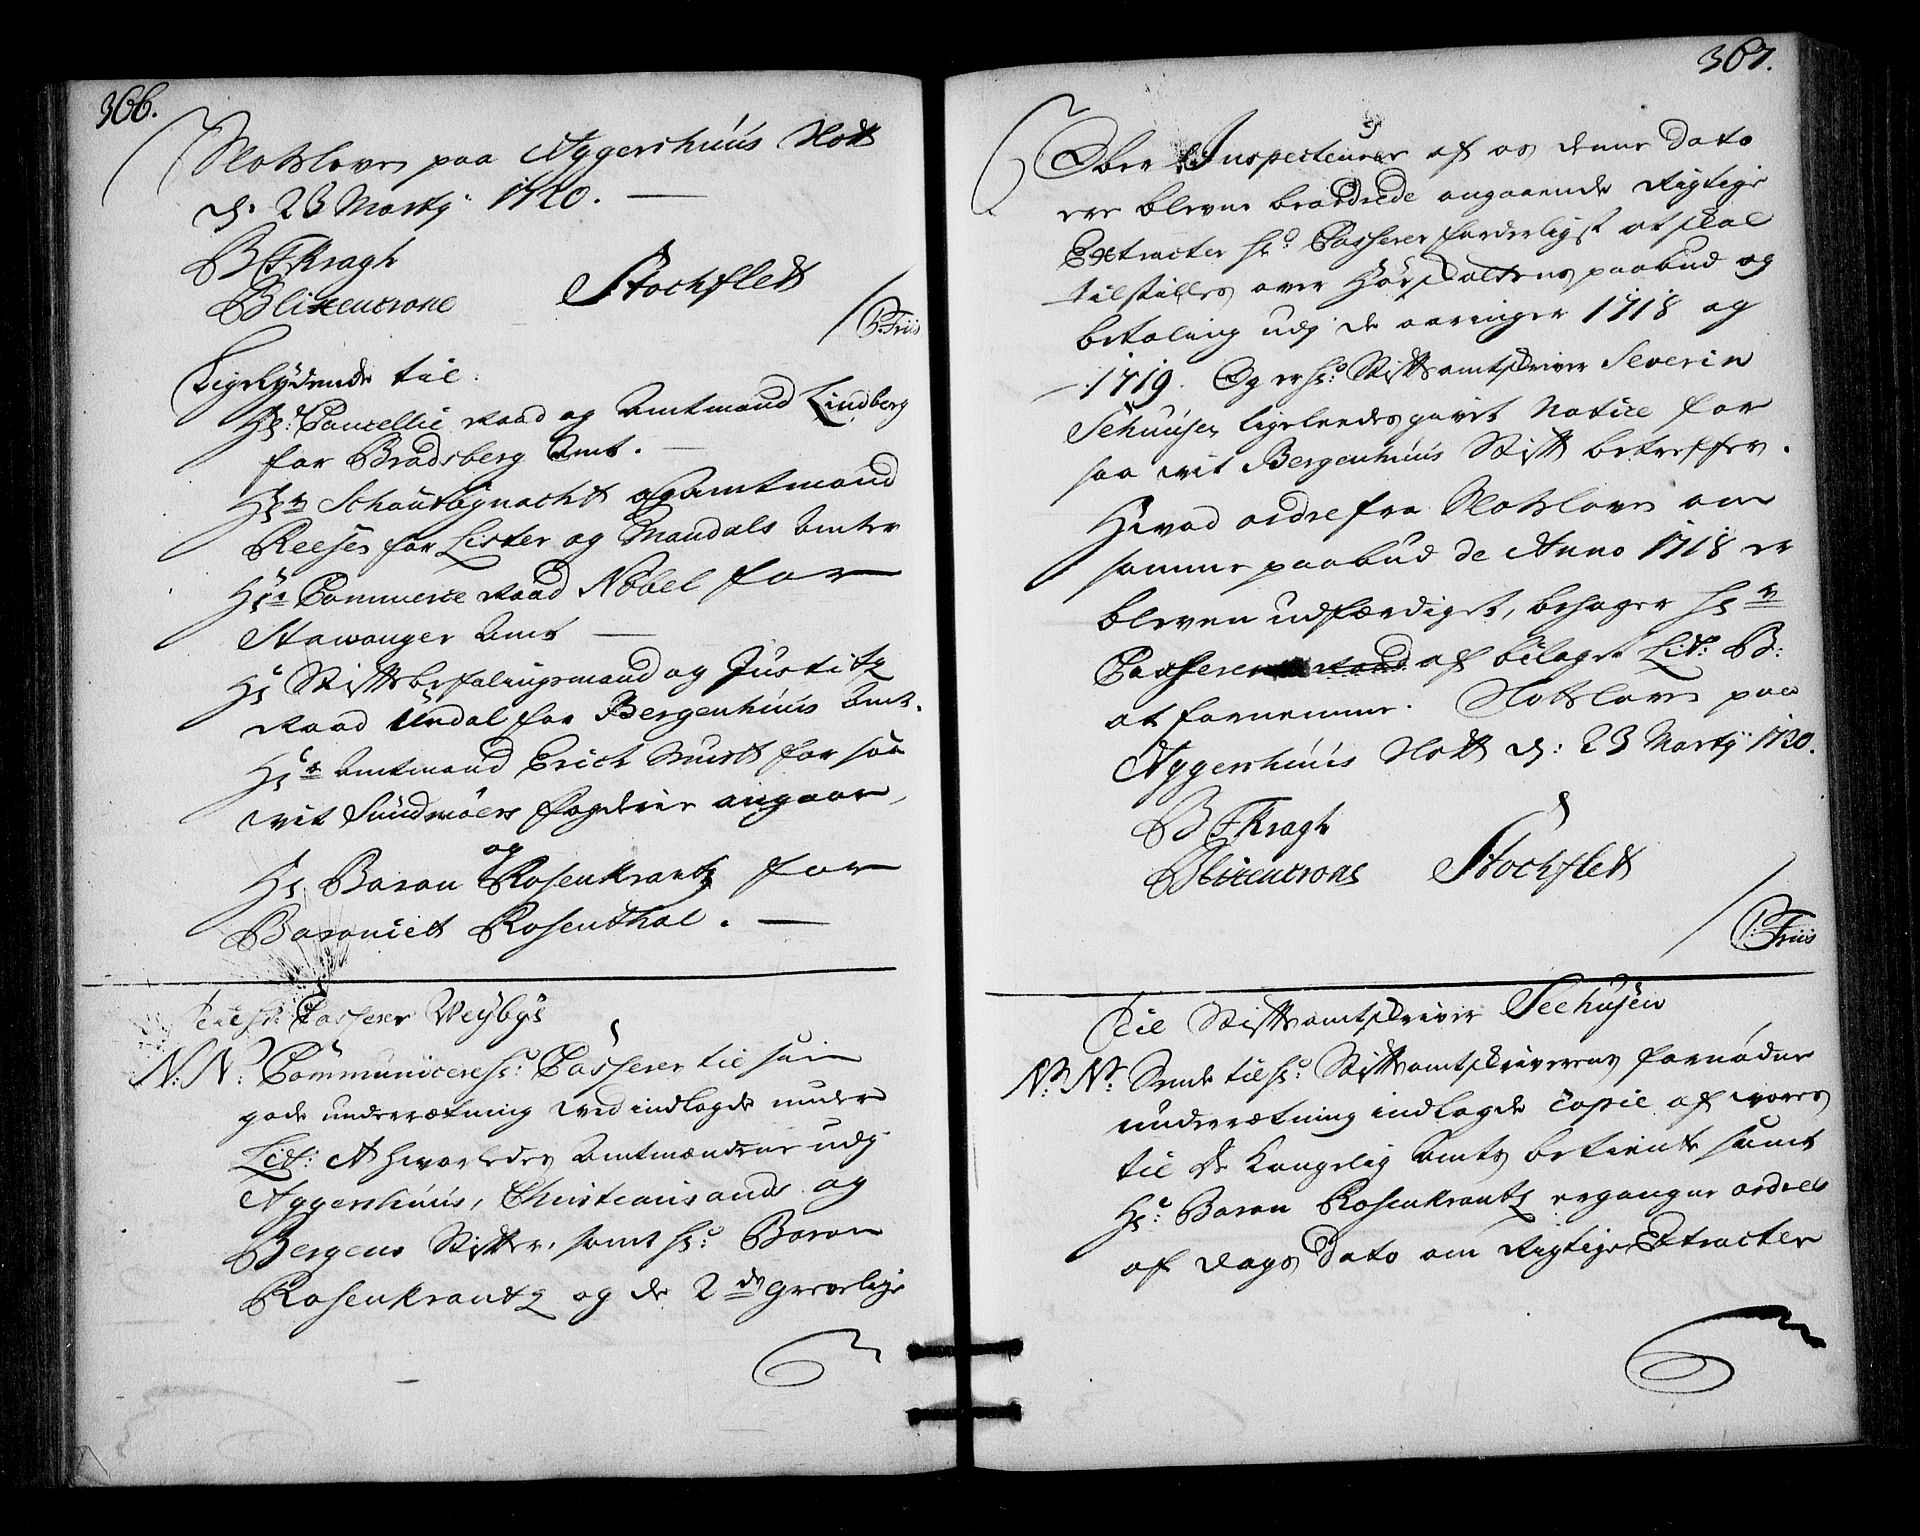 366.
Slotzloven paa Aggershuus Slott
d. 23 Martij 1720.
B F Kragh
Blixencrone Stochflett
/ P: Friis
Ligelydende til
Hr: Cancellie Raad og Amtmand Lindberg
for Bradsberg Amt.
Hr Schoutbynacht og Amtmand
Reesen for Lister og Mandals Amter
Hr Commerce Raad Nobel for
Stawanger Amt
Hr Stiftsbefalingsmand og Justitz
Raad Undal for Bergenhuus Amt.
Hr Amtmand Erich Must for saa
vit Sundmöers fogderie angaar,
og
Hr Baron Rosenkrantz for
Baroniet Rosenthal.
Til Hr: Casserer Weybye
N: N: Communiceres Hr: Casserer til sin
gode underrætning ved indlagde under
Lit: A hvorledes Amtmændene udj
Aggershuus, Christiansands og
Bergens Stifter, samt Hr: Baron
Rosenkrantz og de 2de grevelige
367.
Ober Inspecteurer af os denne Dato
ere blevne beordrede angaaende Rigtige
Extracter Hr: Casserer forderligst at skal
tilstilles over Hörskattens paabud og
betaling udj de aaringer 1718 og
1719. Og er Hr: Stiftamtskriver Severin
Sehuusen ligeleedes givet Notice for
saa vit Bergenhuus Stift betreffer.
Hvad ordre fra Slotzloven om
samme paabud de Anno 1718 er
bleven udfærdiget, behager Hr
Casserer af bilagte Lit: B:
at fornemme. Slotzloven paa
Aggershuus Slott d: 23 Martij 1720.
B F Kragh
Blixencrone Stochflett
/ P: Friis
Til Stiftsamtskriver Seehusen
No No Sende til Hr: Stiftsamtskriverens fornødne
underrætning indlagde Copie af vores
til de Kongelig Amts betiente samt
Hr: Baron Rosenkrantz ergangne ordres
af Dags Dato om Rigtige Extracter